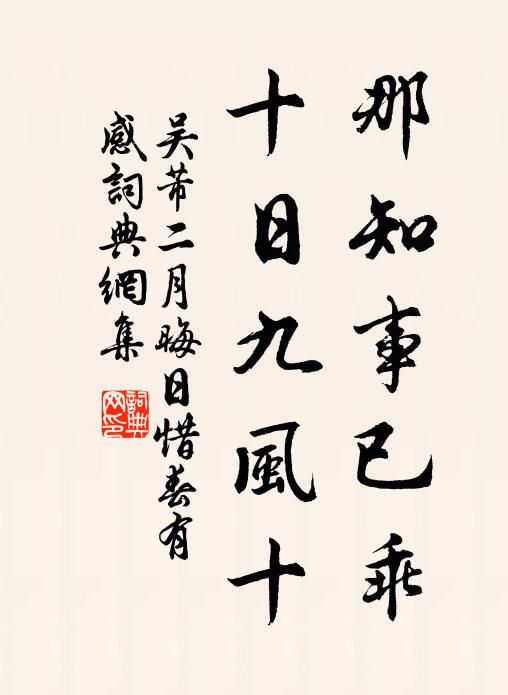 那知事已乖
十日九風十
吳芾二月晦日惜春有
感詞典網集
詞典网印